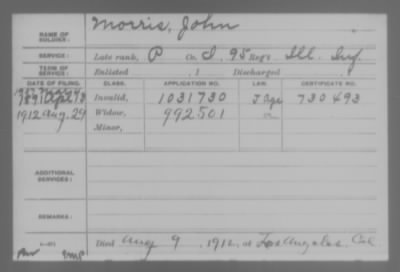 NAME OF SOLDIER: Morris, John
SERVICE: Late rank, P Co. I, 95 Reg't Ill. Inf.
TERM OF SERVICE: Enlisted , 1 Discharged , 1
DATE OF FILING. CLASS. APPLICATION NO. LAW. CERTIFICATE NO.
Invalid, 1031730 730493
1912 Aug. 29 Widow, 992501 a
Minor,
ADDITIONAL SERVICES:
REMARKS:
Died Aug 9, 1912, at Los Angeles, Cal